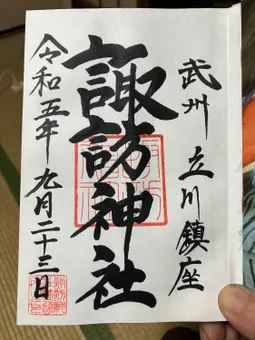 武州 立川鎮座
諏訪神社
令和五年 九月二十三日